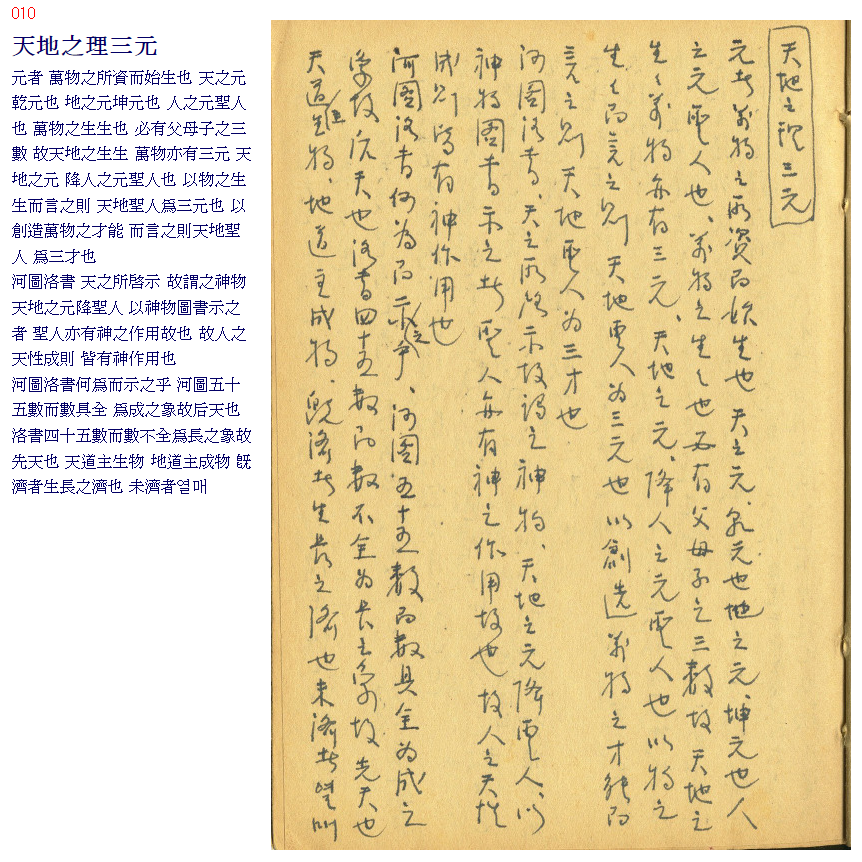 010
天地之理三元
元者 萬物之所資而始生也 天之元
乾元也 地之元坤元也 人之元聖人
也 萬物之生生也 必有父母子之三
數 故天地之生生 萬物亦有三元 天
地之元 降人之元聖人也 以物之生
生而言之則 天地聖人爲三元也 以
創造萬物之才能 而言之則天地聖
人 爲三才也
河圖洛書 天之所啓示 故謂之神物
天地之元降聖人 以神物圖書示之
者 聖人亦有神之作用故也 故人之
天性成則 皆有神作用也
河圖洛書何爲而示之乎 河圖五十
五數而數具全 爲成之象故后天也
洛書四十五數而數不全爲長之象故
先天也 天道主生物 地道主成物 旣
濟者生長之濟也 未濟者열매
天地之理三元
元者萬物之所資而始生也 天之元、乾元也地之元、坤元也人
之元聖人也、萬物之生々也必有父母子之三數故天地之
生々萬物亦有三元、天地之元、降人之元聖人也以物之
生々而言之則 天地聖人为三元也以創造萬物之才能而
言之則天地聖人为三才也
河圖洛書、天之所啓示故謂之神物、天地之元降聖人、以
神物圖書示之者聖人亦有神之作用故也故人之天性
成則皆有神作用也
河圖洛書何为而示之乎、河圖五十五數而數具全为成之
象故后天也洛書四十五數而數不全为長之象故先天也
天道主生物、地道主成物、旣濟者生長之濟也未濟者열매